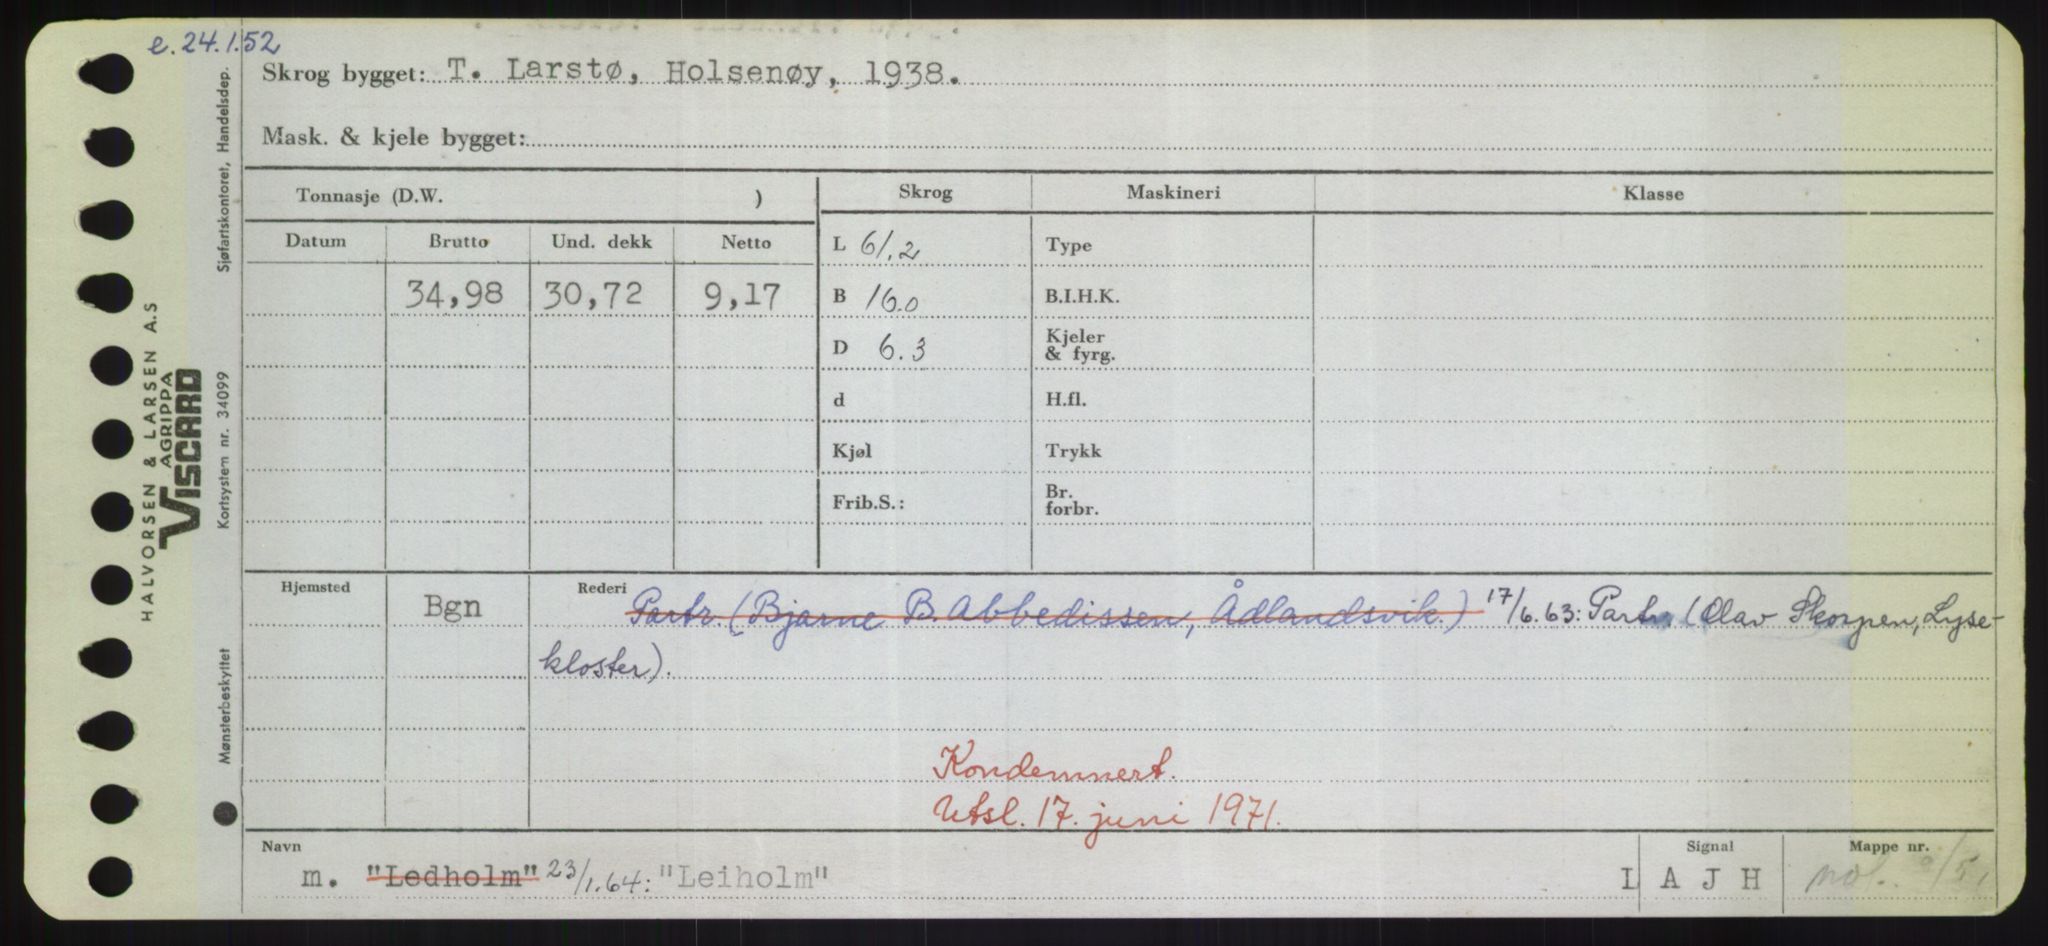 e.24.1.52
Skrog bygget: T. Larstø, Holsenøy, 1938.
Mask. & kjele bygget:
Tonnasje (D.W. )
Skrog Maskineri Klasse
Datum Brutto Und. dekk Netto
L 61.2 Type
34,98 30,72 9,17
B 16.0 B.I.H.K.
D 6.3 Kjeler & fyrg.
d H.fl.
Kjøl Trykk
Frib.S.: Br. forbr.
Hjemsted Bgn Rederi Partr. (Bjarne B. Abbedissen, Ådlandsvik.) 17/6.63: Partr. (Olav Skorpen, Lyse-
kloster).
Kondemnert.
Utsl. 17. juni 1971.
Navn Signal Mappe nr.
m. "Ledholm" 23/1.64: "Leiholm" L A J H
HALVORSEN & LARSEN A.S
AGRIPPA
VISCARD
Mønsterbeskyttet Kortsystem nr. 34099 Sjøfartskontoret, Handelsdep.